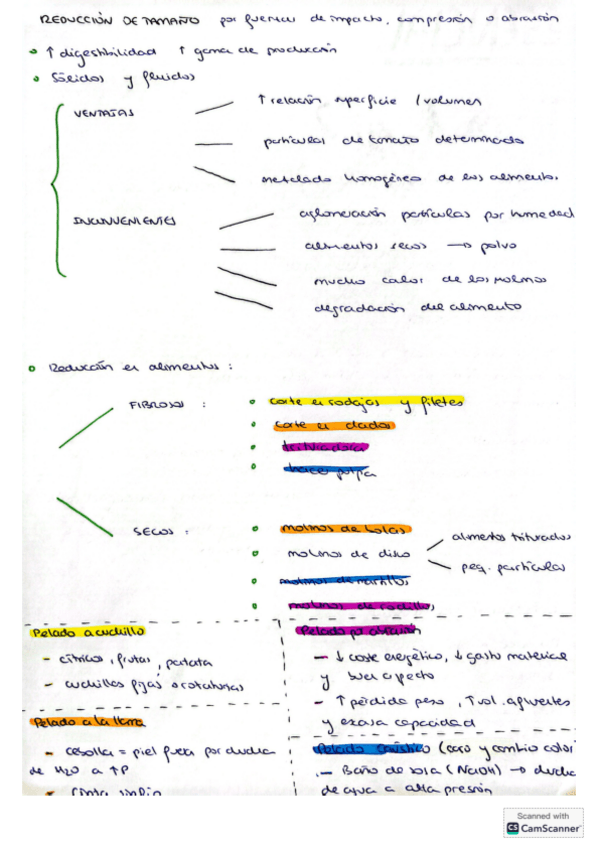 REDUCCIÓN DE TAMAÑO por fuerzas de impacto, compresión o abrasión
↑ digestibilidad ↑ gama de producción
Sólidos y fluidos
VENTAJAS
↑ relación superficie / volumen
partículas de tamaño determinado
mezclado homogéneo de los alimento.
INCONVENIENTES
aglomeración partículas por humedad
alimentos secos → polvo
mucho calor de los molinos
degradación del alimento
Reducción en alimentos :
FIBROSOS :
corte en rodajas y filetes
corte en dados
trituradora
hacer pulpa
SECOS :
molinos de bolas
molinos de disco
alimentos triturados
peq. partículas
molinos de martillos
molinos de rodillos
Pelado a cuchillo
- cítricos, frutas, patata
- cuchillas fijas o rotatorias
Pelado por abrasión
- ↓ coste energético, ↓ gasto material
y buen aspecto
- ↑ pérdida peso, ↑ vol. afluentes
y escasa capacidad
Pelado a la llama
- cebolla = piel fuera por ducha
de H2O a ↑P
- cinta
Pelado caústico (caro y cambio color
- Baño de sosa (NaOH) → ducha
de agua a alta presión
Scanned with
CS CamScanner